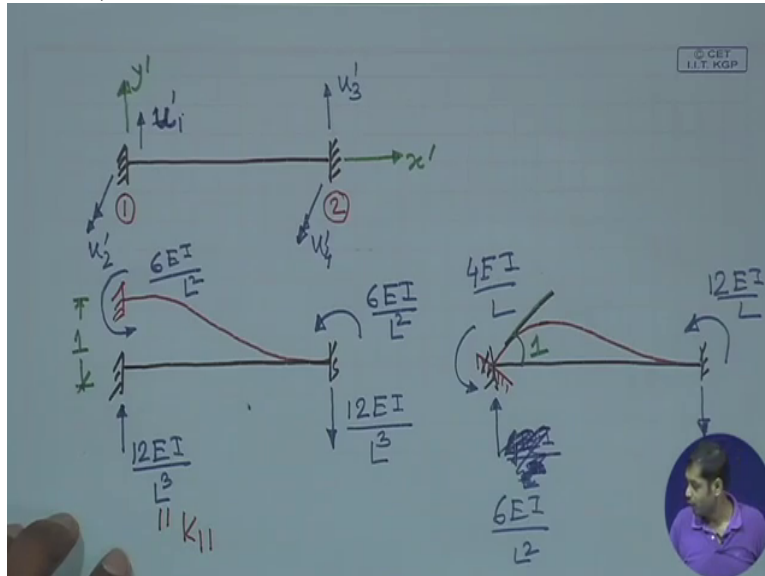 © CET
I.I.T. KGP
y'
u'1
u'3
x'
1
2
u'2
u'4
6EI
L²
6EI
L²
1
12EI
L³
12EI
L³
" K11
4EI
L
1
12EI
L
6EI
L²